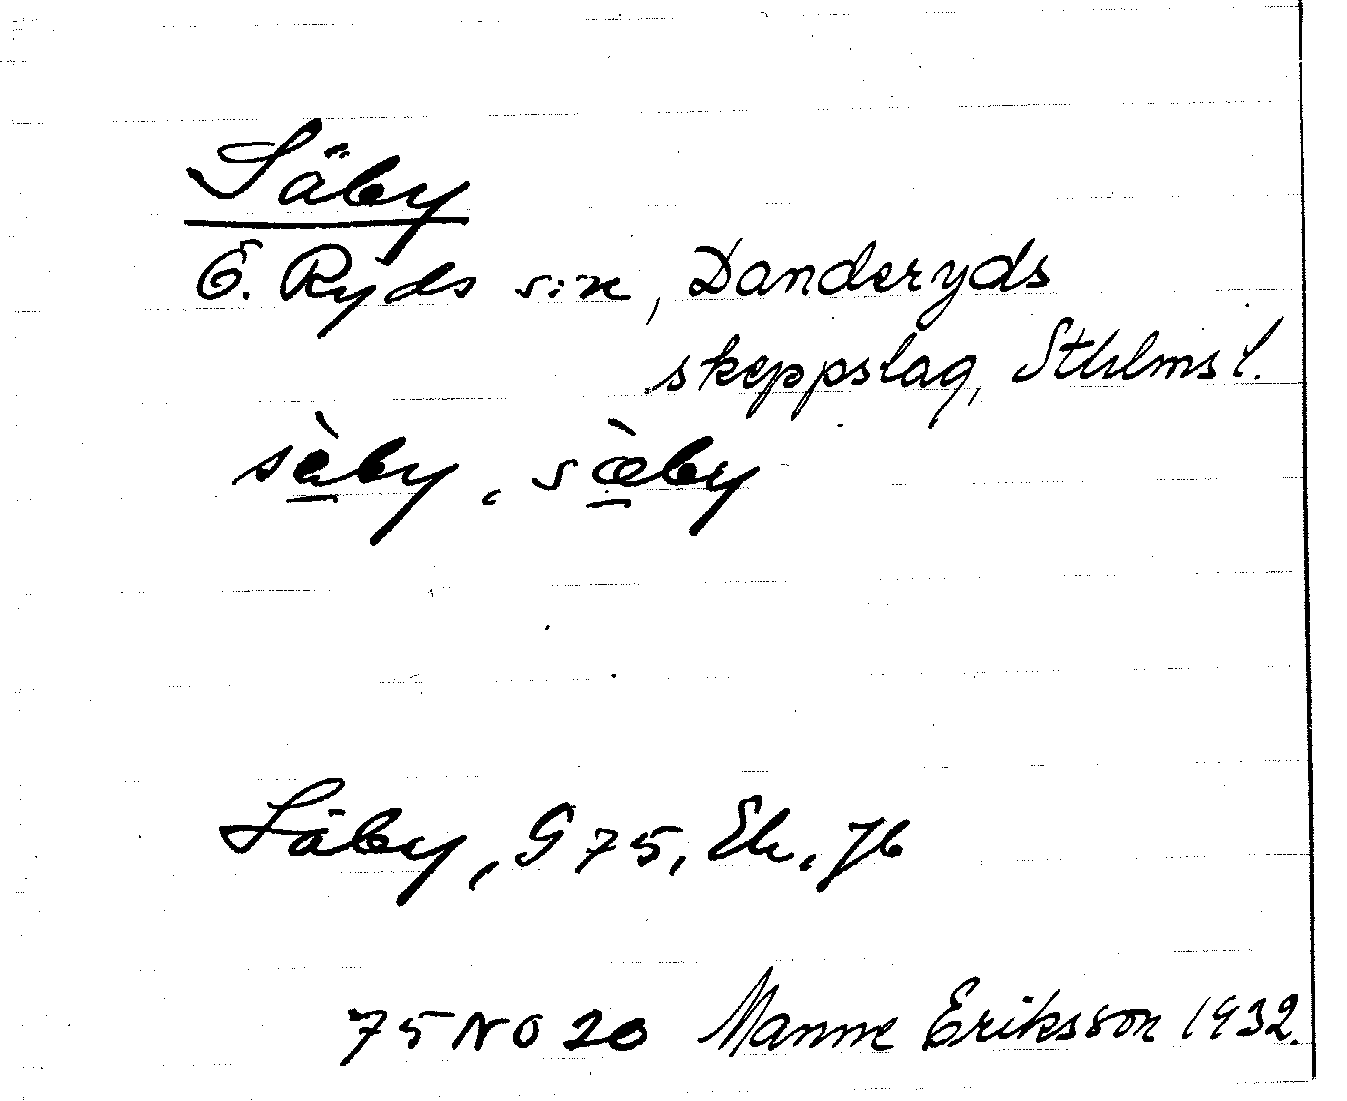 Säby
Ö. Ryds sn, Danderyds
skeppslag, Sthlms l.
sè̱by, sæ̱̀by
Säby, G 75, Ek. Jb
75 NO 20 Manne Eriksson 1932.